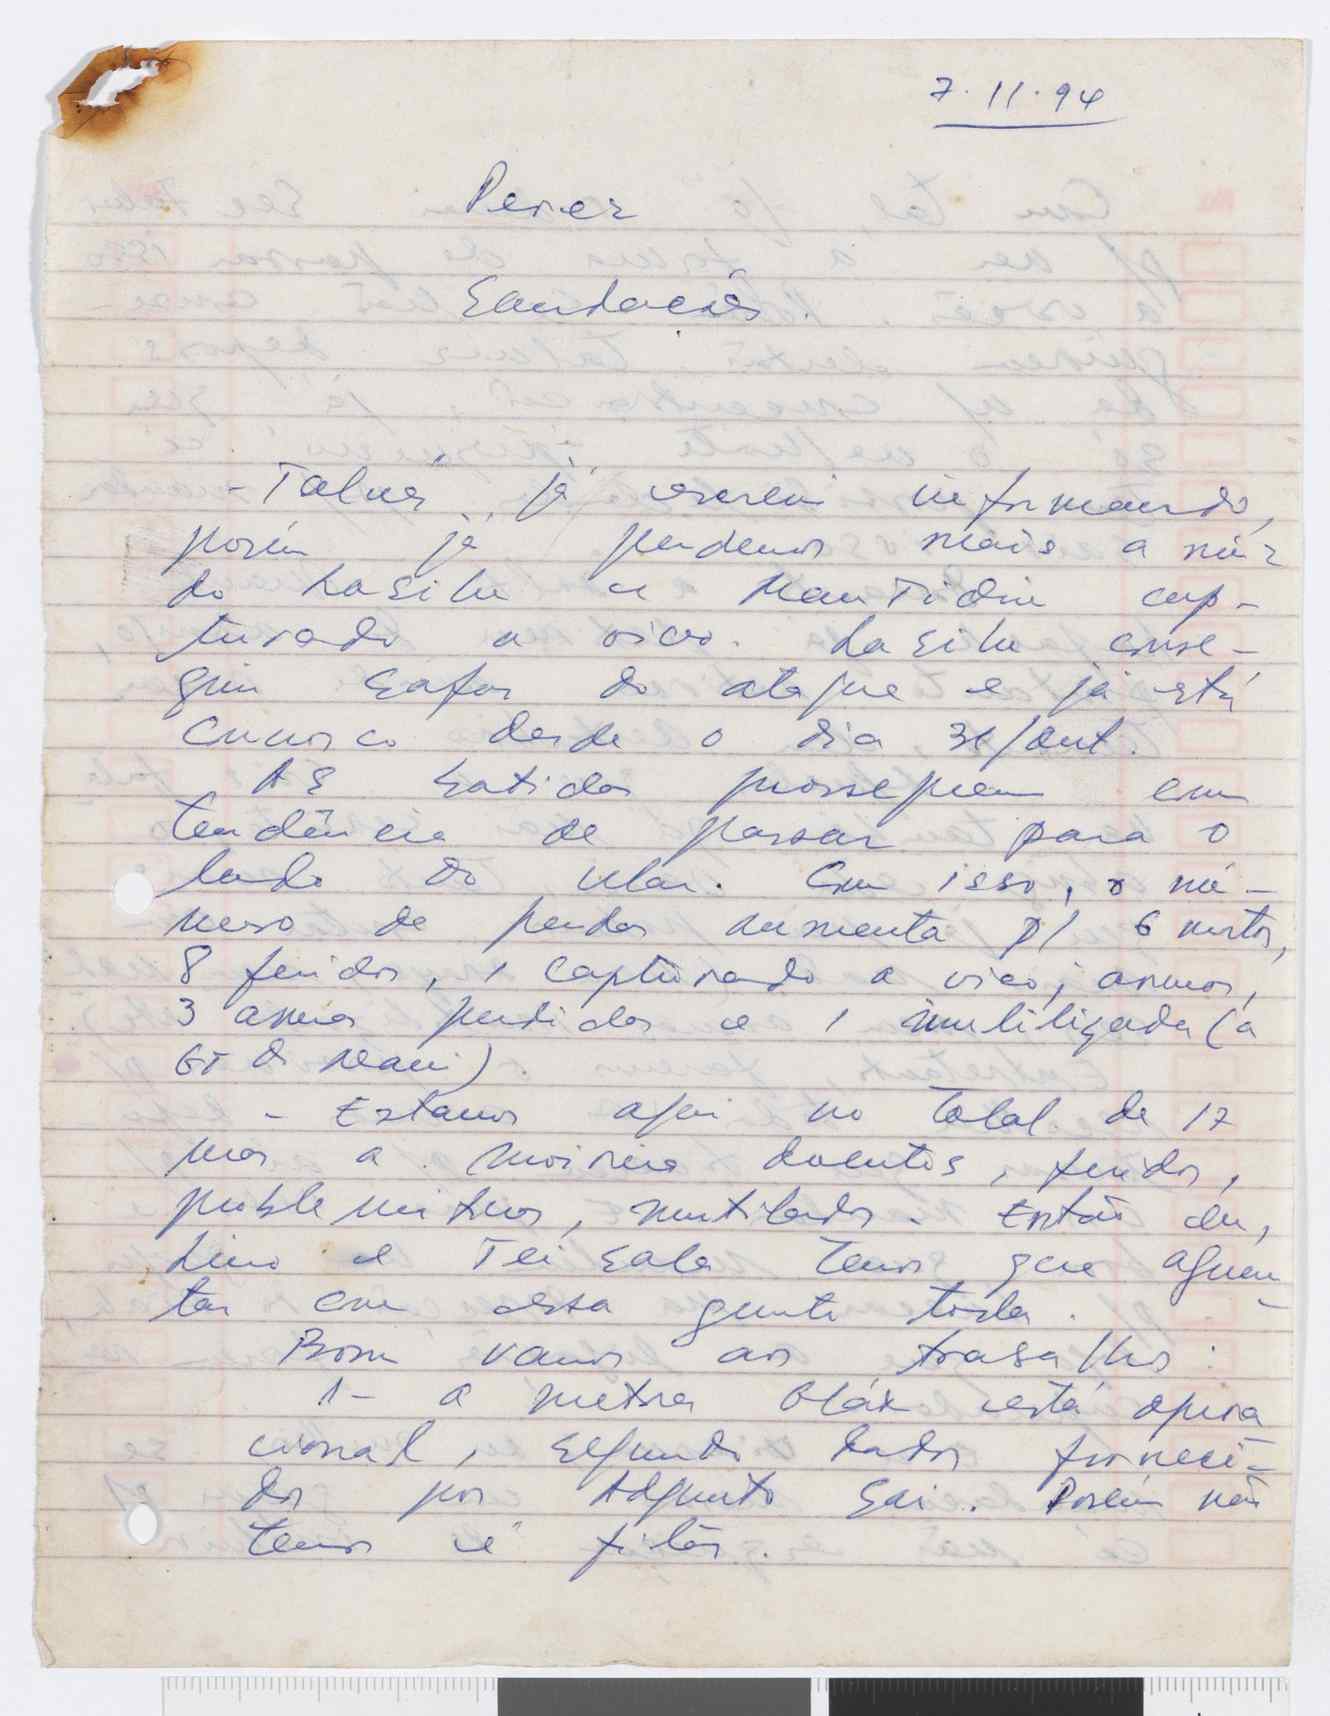 7.11.94
Perez
Saudacões.
- Talvez, já escrevi informando,
porém já perdemos mais a mãe
do Lasilu e Mau Tidiu cap-
turado a vivo. Lasilu conse-
guiu safar do ataque e já está
connosco desde o dia 31/Out.
AS batidas prosseguem com
tendência de passar para o
lado do Mar. Com isso, o nú-
mero de perdas aumenta p/ 6 mortos,
8 feridos, 1 capturado a vivo; armas,
3 armas perdidas e 1 inutilizada (a
de Maui)
- Estamos aqui no total de 17
mas a maioria doentes, feridos,
problemáticos, mutilados. Então eu,
Lino e Tei Sala temos que aguen-
tar com essa gente toda.
Bom vamos aos trabalhos:
1- a metra está opera
cional, segundo dados forneci-
dos por Adjunto Sai. Porém não
temos é fitas.